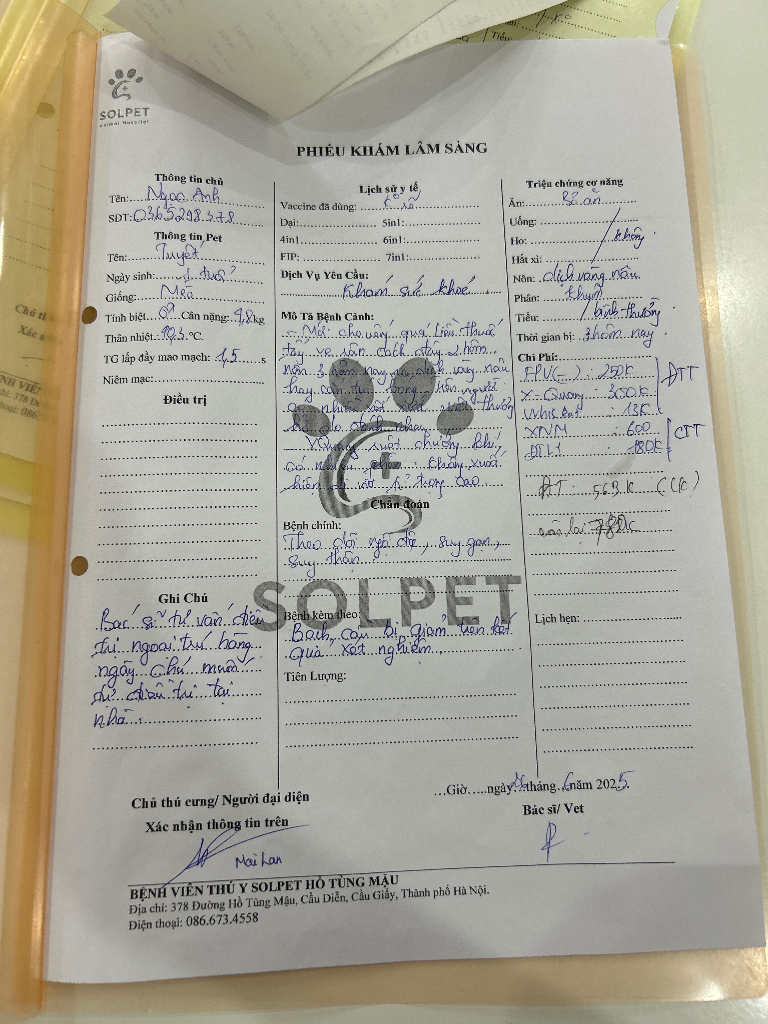 SOLPET
Animal Hospital
PHIẾU KHÁM LÂM SÀNG
Thông tin chủ
Tên: Ngọc Anh
SĐT: 0365298378
Thông tin Pet
Tên: Tuyết
Ngày sinh: 1 tuổi
Giống: Mèo
Tính biệt: Cân nặng: 4,8kg
Thân nhiệt: °C
TG lấp đầy mao mạch: 1,5 s
Niêm mạc:
Điều trị
Ghi Chú
Bác sĩ tư vấn điều
trị ngoại trú hàng
ngày. Chủ muốn
điều trị tại
nhà.
Lịch sử y tế
Vaccine đã dùng: K rõ
Dại: 5in1:
4in1 6in1:
FIP: 7in1:
Dịch Vụ Yên Cầu:
Khám sức khoẻ.
Mô Tả Bệnh Cảnh:
- Mới cho uống quá liều thuốc
tẩy ve rận cách đây 2 hôm
nôn 3 hôm nay ra dịch vàng nâu
hay
nhiều xuất
do đánh nhau.
XQuang xuất chướng khí
có nhiều, không xuất
hiện tỉ trọng cao
Chẩn đoán
Bệnh chính:
Theo dõi ngộ độc, suy gan,
suy thận
Bệnh kèm theo:
Bạch cầu bị giảm trên kết
quả xét nghiệm.
Tiên Lượng:
Triệu chứng cơ năng
Ăn: Bỏ ăn
Uống:
Ho: không
Hắt xì:
Nôn: dịch vàng nâu
Phân:
Tiểu: bình thường
Thời gian bị: 3 hôm nay
Chi Phí:
FPV(-) : 250K
X-Quang : 300K
: 13K
ĐTT
XNM : 600
ĐTL1 : 180K
CTT
ĐT: 563K (CK)
còn lại 780K
Lịch hẹn:
Chủ thú cưng/ Người đại diện
Xác nhận thông tin trên
Mai Lan
…Giờ…..ngày tháng 6 năm 2025
Bác sĩ/ Vet
BỆNH VIỆN THÚ Y SOLPET HỒ TÙNG MẬU
Địa chỉ: 378 Đường Hồ Tùng Mậu, Cầu Diễn, Cầu Giấy, Thành phố Hà Nội.
Điện thoại: 086.673.4558
SOLPET